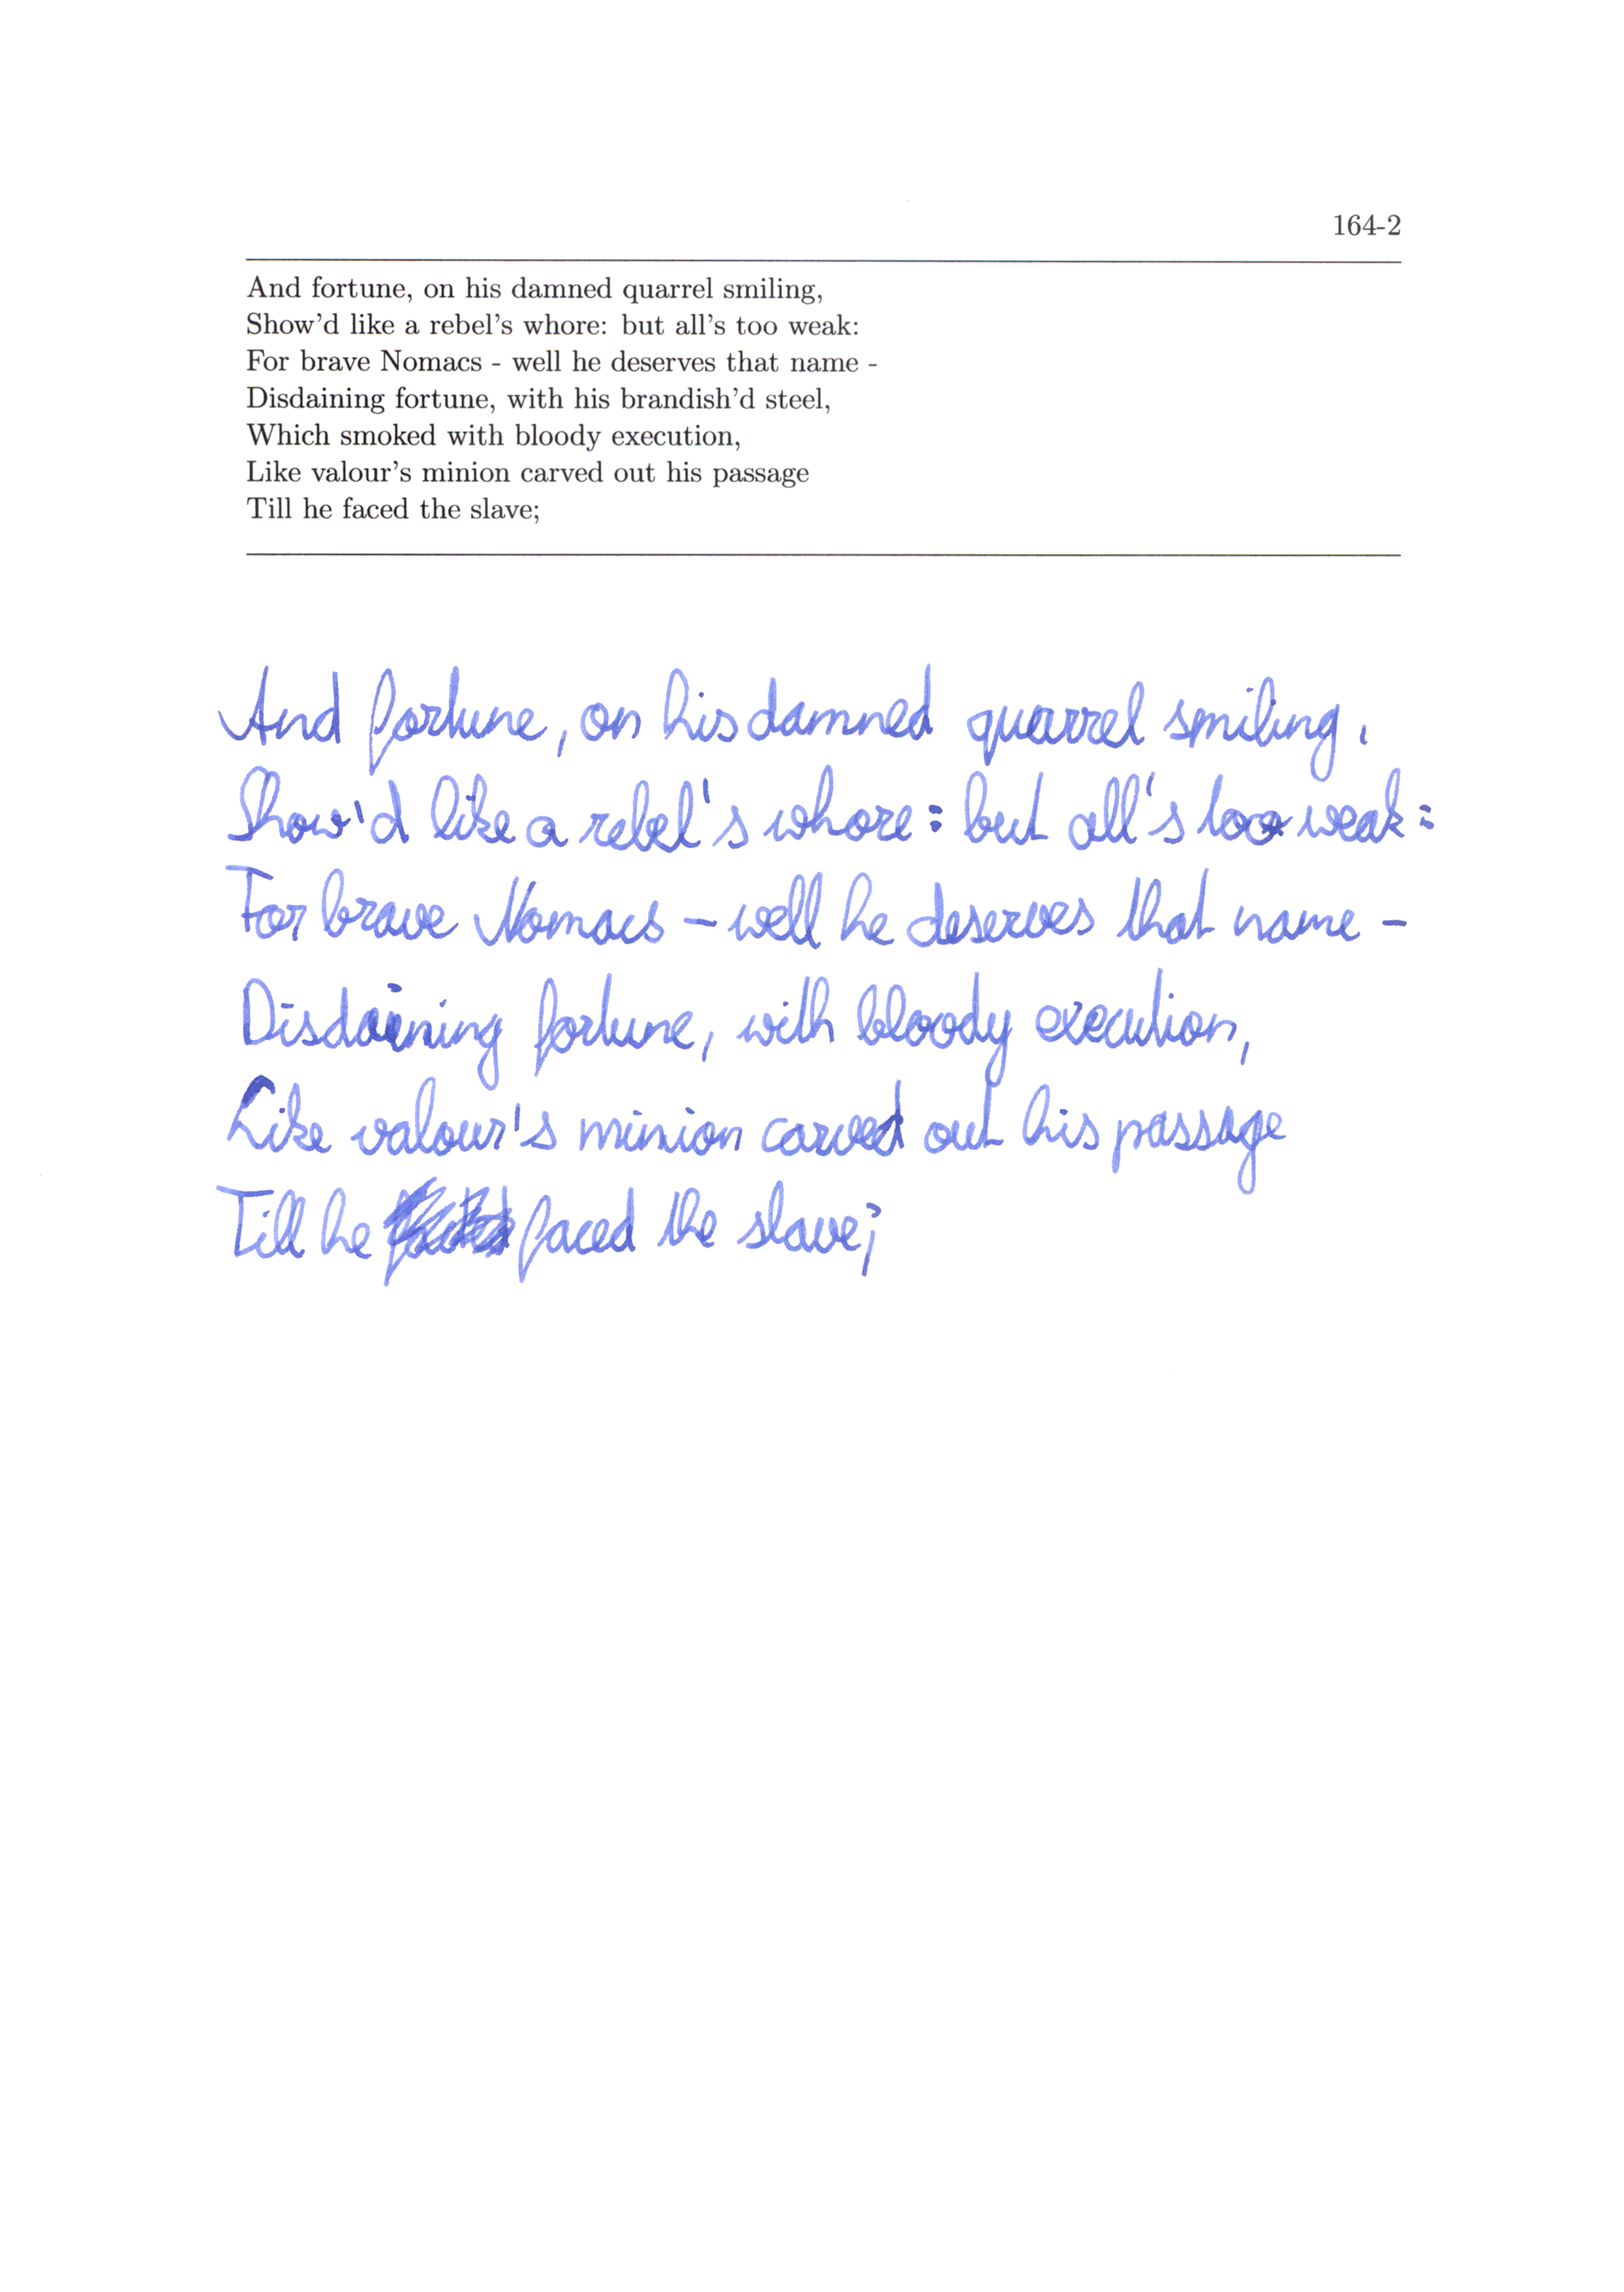 164-2
And fortune, on his damned quarrel smiling,
Show'd like a rebel's whore: but all's too weak:
For brave Nomacs - well he deserves that name -
Disdaining fortune, with his brandish'd steel,
Which smoked with bloody execution,
Like valour's minion carved out his passage
Till he faced the slave;
And fortune, on his damned quarrel smiling,
Show'd like a rebel's whore: but all's too weak:
For brave Nomacs - well he deserves that name -
Disdaining fortune, with bloody execution,
Like valour's minion carved out his passage
Till he faced the slave;